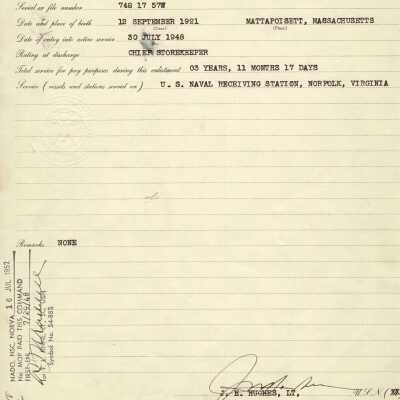 Serial or file number 748 17 57W
Date and place of birth 12 SEPTEMBER 1921 MATTAPOISETT, MASSACHUSETTS
(Date) (Place)
Date of entry into active service 30 JULY 1948
Rating at discharge CHIEF STOREKEEPER
Total service for pay purposes during this enlistment 03 YEARS, 11 MONTHS 17 DAYS
Service (vessels and stations served on) U. S. NAVAL RECEIVING STATION, NORFOLK, VIRGINIA
Remarks NONE
NADO, NSC, NORVA 16 JUL 1952
No. MOP PAID THIS COMMAND
FIRST-INI.
Symbol No. 54-885
J. E. HUGHES, LT, U.S.N.